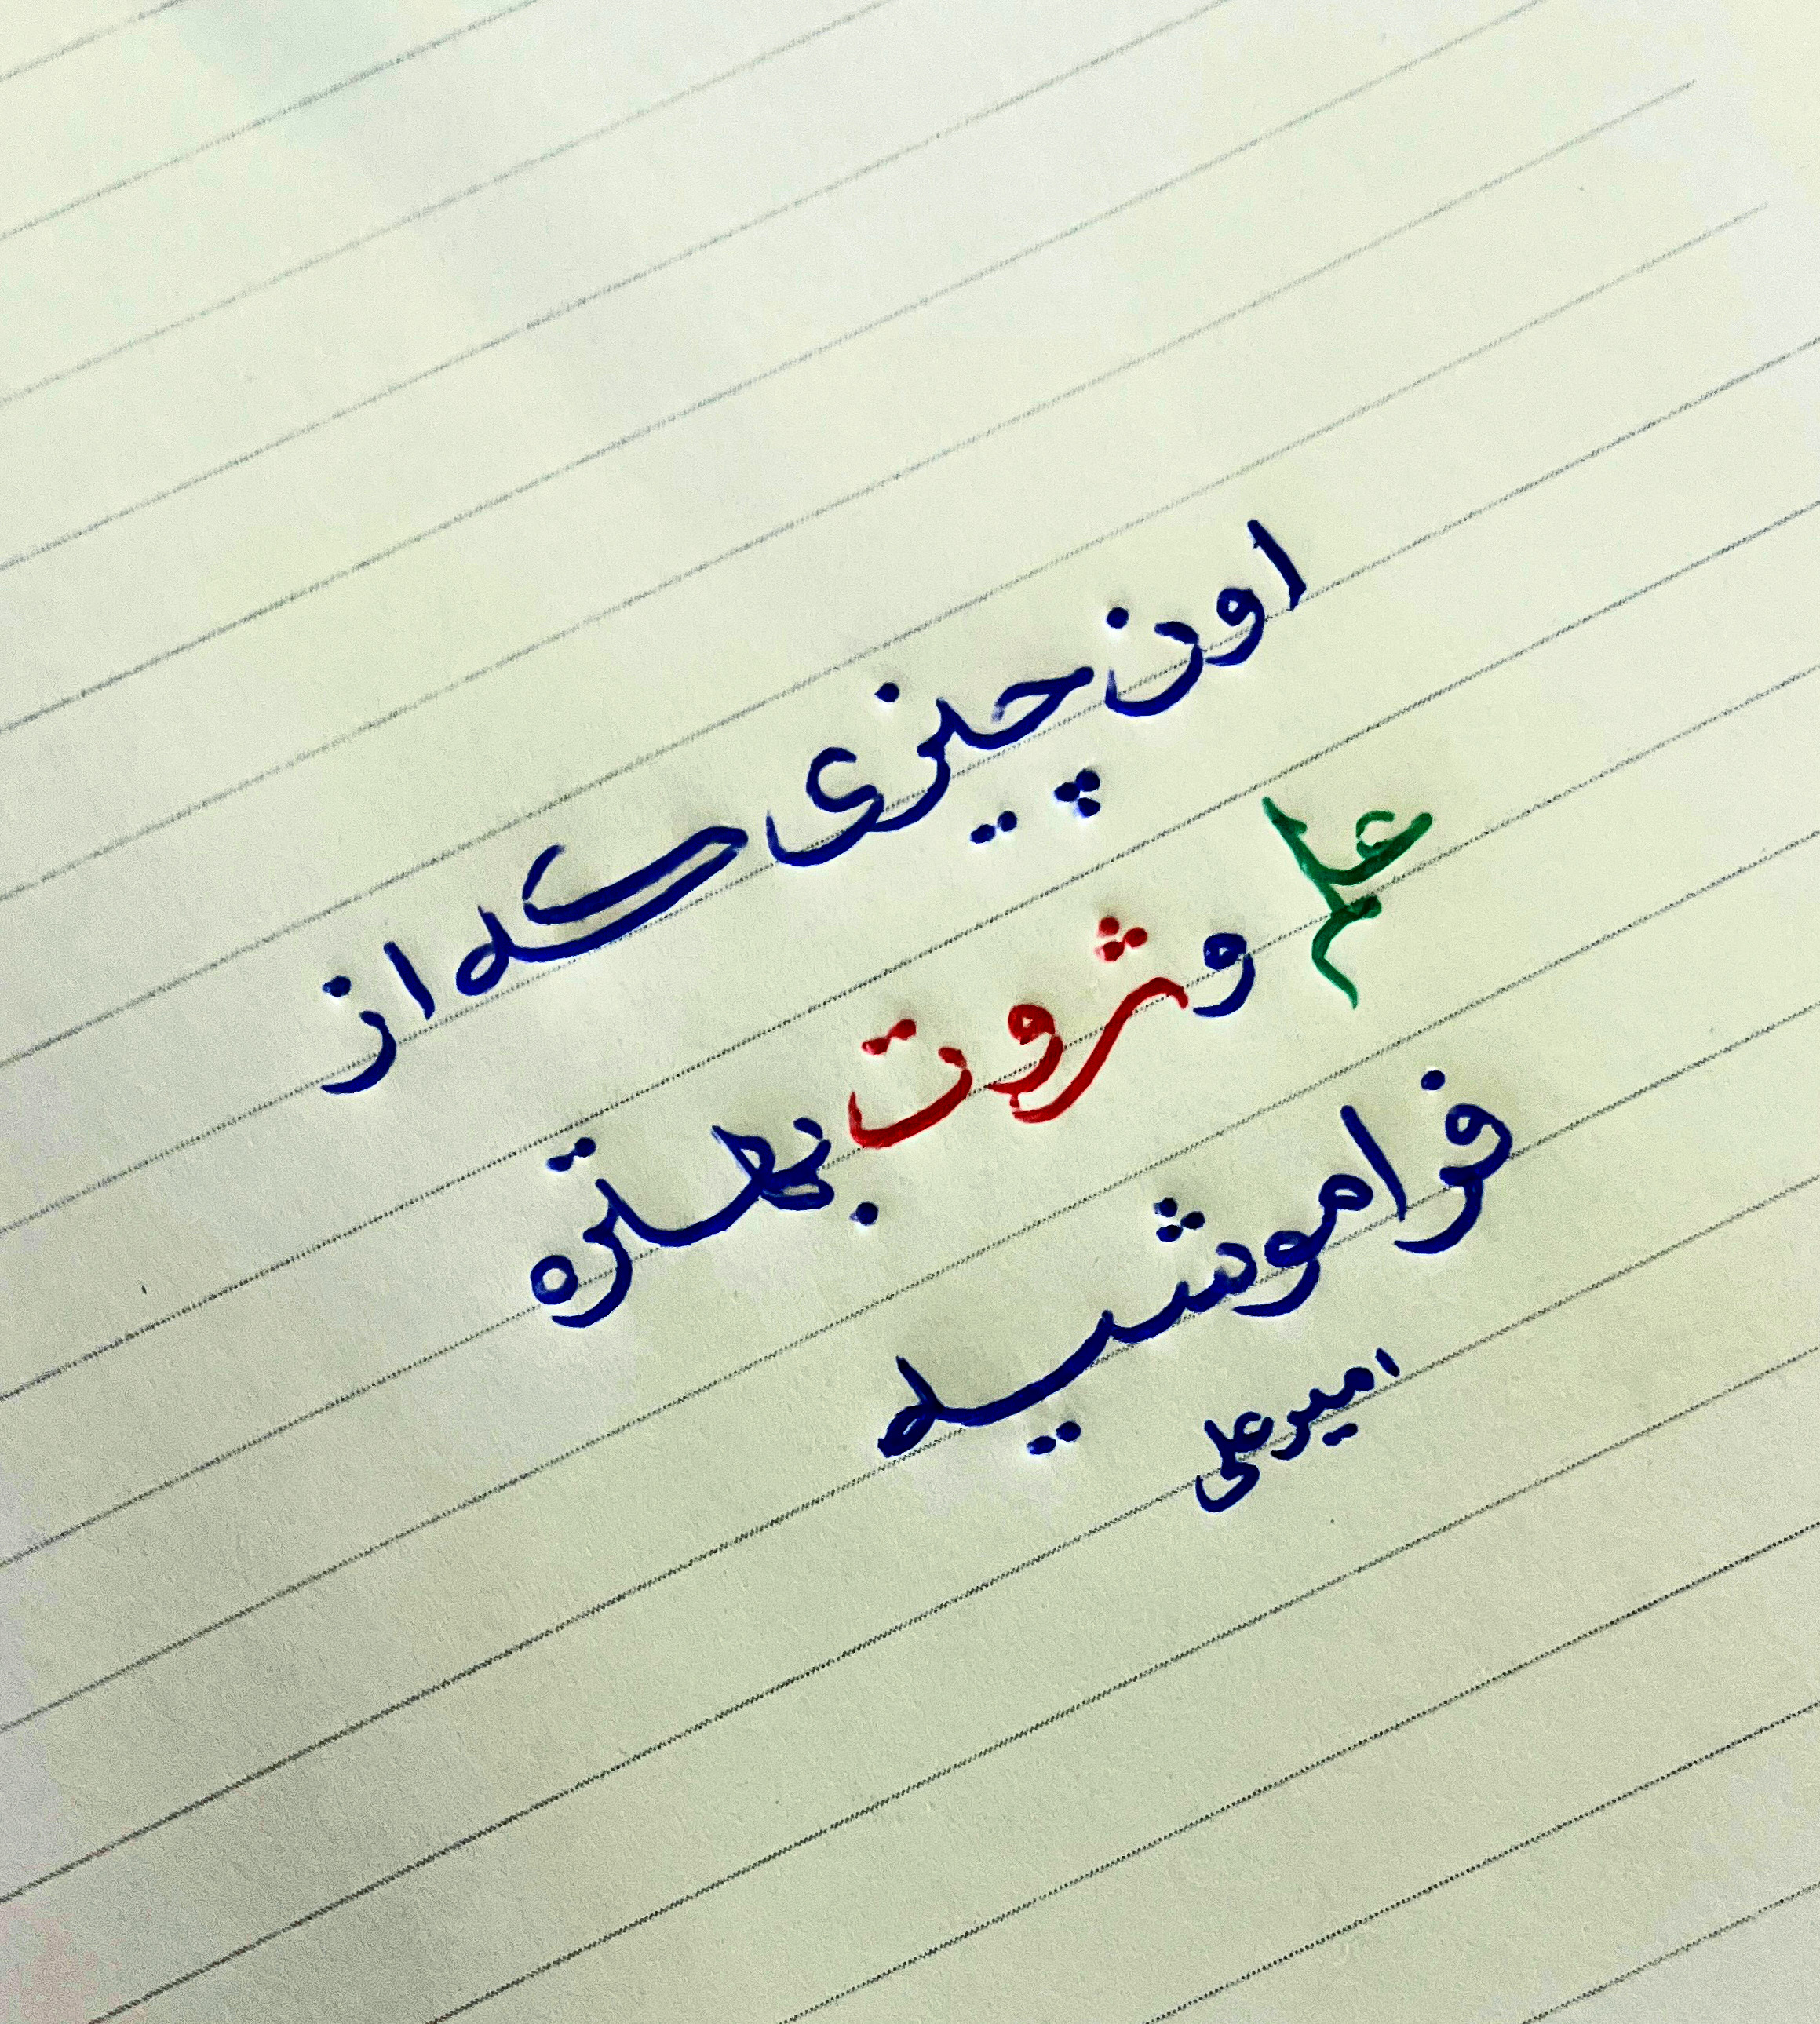 اون چیزی که از
علم و ثروت بهتره
فراموشیه
امیرعلی